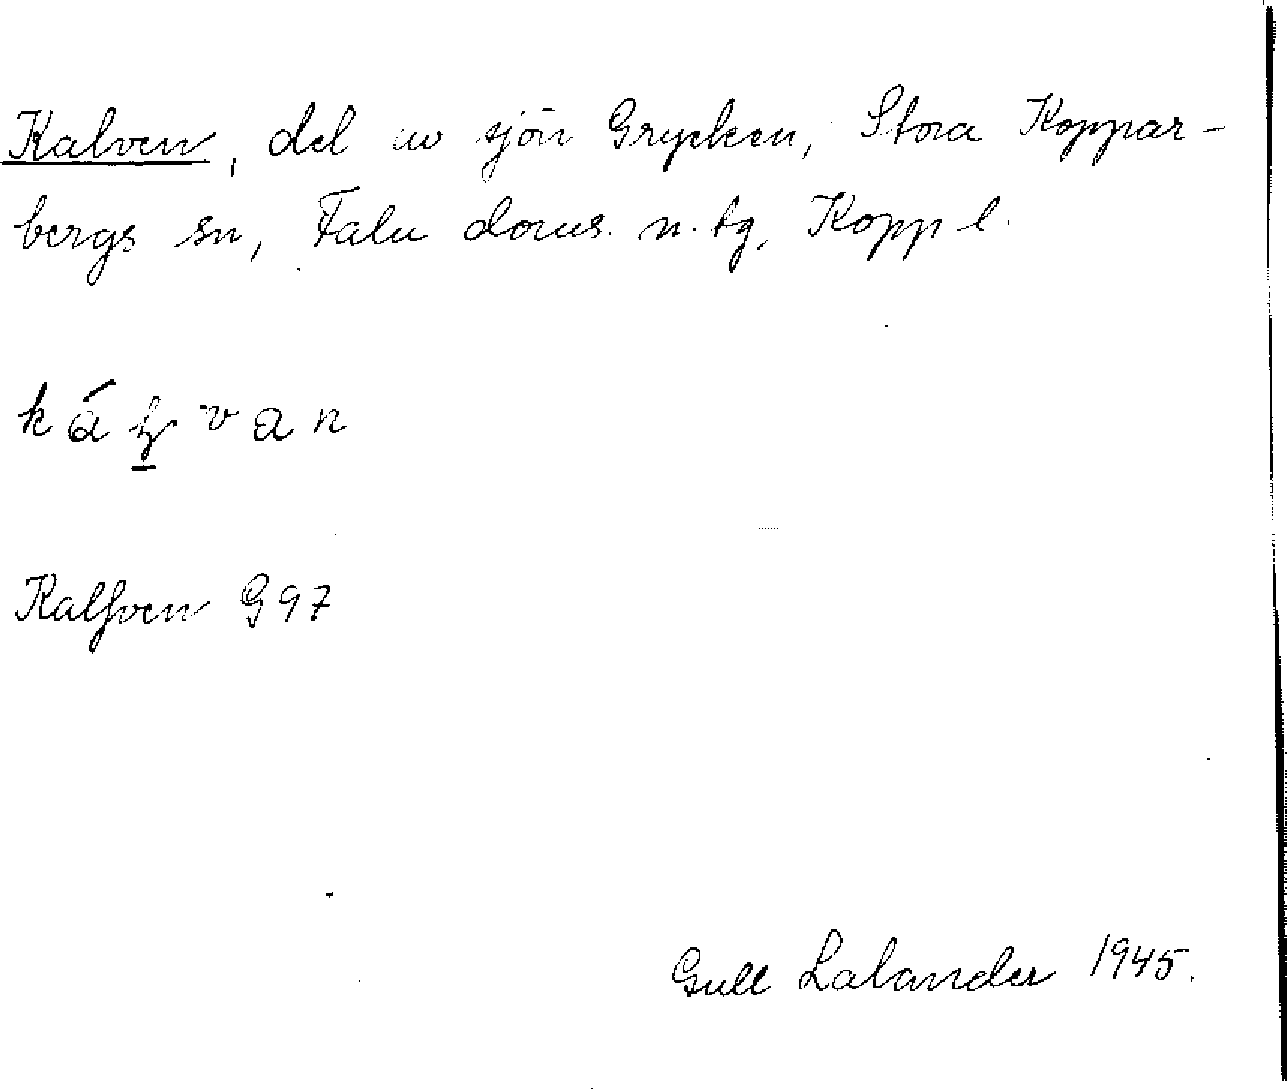 Kalven, del av sjön Grycken, Stora Koppar-
bergs sn, Falu doms. n. tg, Kopp l.
Kalfven G97
Gull Lalander 1945.